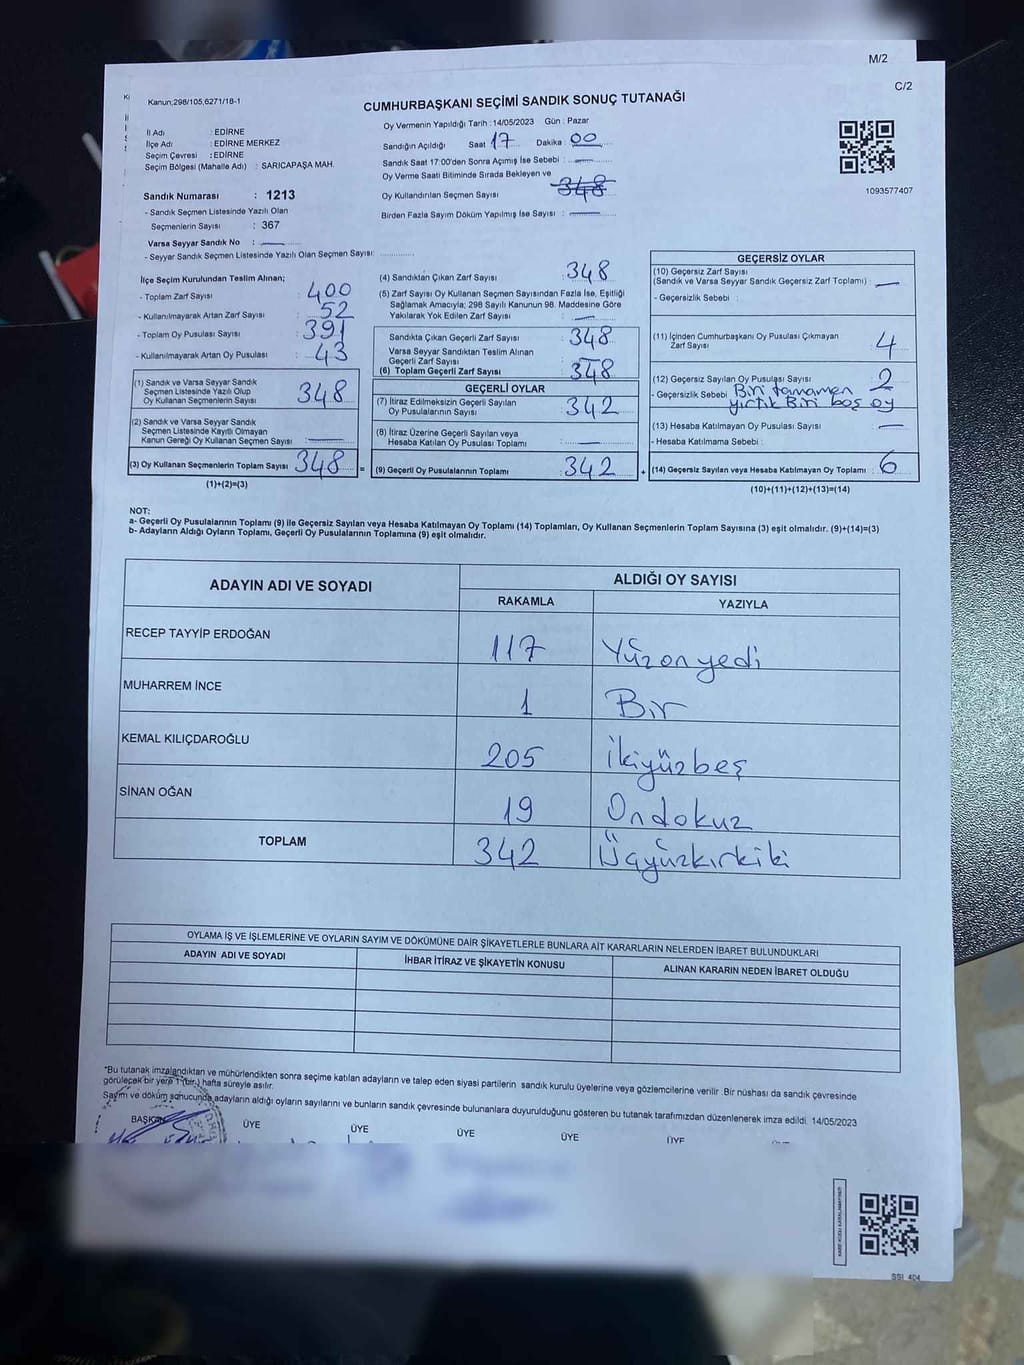 M/2
C/2
Kanun,298/105,6271/18-1
CUMHURBAŞKANI SEÇİMİ SANDIK SONUÇ TUTANAĞI
İl Adı : EDİRNE
İlçe Adı : EDİRNE MERKEZ
Seçim Çevresi : EDİRNE
Seçim Bölgesi (Mahalle Adı) : SARICAPAŞA MAH.
Sandık Numarası : 1213
- Sandık Seçmen Listesinde Yazılı Olan
Seçmenlerin Sayısı : 367
Varsa Seyyar Sandık No :
- Seyyar Sandık Seçmen Listesinde Yazılı Olan Seçmen Sayısı:
Oy Vermenin Yapıldığı Tarih :14/05/2023 Gün : Pazar
Sandığın Açıldığı Saat 17 Dakika 00
Sandık Saat 17:00'den Sonra Açımış İse Sebebi :
Oy Verme Saati Bitiminde Sırada Bekleyen ve
Oy Kullandırılan Seçmen Sayısı 348
Birden Fazla Sayım Döküm Yapılmış İse Sayısı :
1093577407
İlçe Seçim Kurulundan Teslim Alınan;
- Toplam Zarf Sayısı : 400
- Kullanılmayarak Artan Zarf Sayısı : 52
- Toplam Oy Pusulası Sayısı : 391
- Kullanılmayarak Artan Oy Pusulası : 43
(1) Sandık ve Varsa Seyyar Sandık
Seçmen Listesinde Yazılı Olup
Oy Kullanan Seçmenlerin Sayısı : 348
(2) Sandık ve Varsa Seyyar Sandık
Seçmen Listesinde Kayıtlı Olmayan
Kanun Gereği Oy Kullanan Seçmen Sayısı :
(3) Oy Kullanan Seçmenlerin Toplam Sayısı : 348 =
(1)+(2)=(3)
(4) Sandıktan Çıkan Zarf Sayısı : 348
(5) Zarf Sayısı Oy Kullanan Seçmen Sayısından Fazla İse, Eşitliği
Sağlamak Amacıyla; 298 Sayılı Kanunun 98. Maddesine Göre
Yakılarak Yok Edilen Zarf Sayısı :
Sandıkta Çıkan Geçerli Zarf Sayısı : 348
Varsa Seyyar Sandıktan Teslim Alınan
Geçerli Zarf Sayısı :
(6) Toplam Geçerli Zarf Sayısı : 348
GEÇERLİ OYLAR
(7) İtiraz Edilmeksizin Geçerli Sayılan
Oy Pusulalarının Sayısı : 342
(8) İtiraz Üzerine Geçerli Sayılan veya
Hesaba Katılan Oy Pusulası Toplamı :
(9) Geçerli Oy Pusulalarının Toplamı : 342 +
GEÇERSİZ OYLAR
(10) Geçersiz Zarf Sayısı
(Sandık ve Varsa Seyyar Sandık Geçersiz Zarf Toplamı) :
- Geçersizlik Sebebi :
(11) İçinden Cumhurbaşkanı Oy Pusulası Çıkmayan
Zarf Sayısı : 4
(12) Geçersiz Sayılan Oy Pusulası Sayısı : 2
- Geçersizlik Sebebi Biri tamamen
yırtık Biri boş oy
(13) Hesaba Katılmayan Oy Pusulası Sayısı :
- Hesaba Katılmama Sebebi :
(14) Geçersiz Sayılan veya Hesaba Katılmayan Oy Toplamı : 6
(10)+(11)+(12)+(13)=(14)
NOT:
a- Geçerli Oy Pusulalarının Toplamı (9) ile Geçersiz Sayılan veya Hesaba Katılmayan Oy Toplamı (14) Toplamları, Oy Kullanan Seçmenlerin Toplam Sayısına (3) eşit olmalıdır. (9)+(14)=(3)
b- Adayların Aldığı Oyların Toplamı, Geçerli Oy Pusulalarının Toplamına (9) eşit olmalıdır.
ADAYIN ADI VE SOYADI
ALDIĞI OY SAYISI
RAKAMLA YAZIYLA
RECEP TAYYİP ERDOĞAN 117 Yüzonyedi
MUHARREM İNCE 1 Bir
KEMAL KILIÇDAROĞLU 205 İkiyüzbeş
SİNAN OĞAN 19 Ondokuz
TOPLAM 342 Üçyüzkırkiki
OYLAMA İŞ VE İŞLEMLERİNE VE OYLARIN SAYIM VE DÖKÜMÜNE DAİR ŞİKAYETLERLE BUNLARA AİT KARARLARIN NELERDEN İBARET BULUNDUKLARI
ADAYIN ADI VE SOYADI İHBAR İTİRAZ VE ŞİKAYETİN KONUSU ALINAN KARARIN NEDEN İBARET OLDUĞU
*Bu tutanak imzalandıktan ve mühürlendikten sonra seçime katılan adayların ve talep eden siyasi partilerin sandık kurulu üyelerine veya gözlemcilerine verilir .Bir nüshası da sandık çevresinde
görülecek bir yere 1 (bir.) hafta süreyle asılır.
Sayım ve döküm sonucunda adayların aldığı oyların sayılarını ve bunların sandık çevresinde bulunanlara duyurulduğunu gösteren bu tutanak tarafımızdan düzenlenerek imza edildi. 14/05/2023
BAŞKAN ÜYE ÜYE ÜYE ÜYE ÜYE
SSI_404